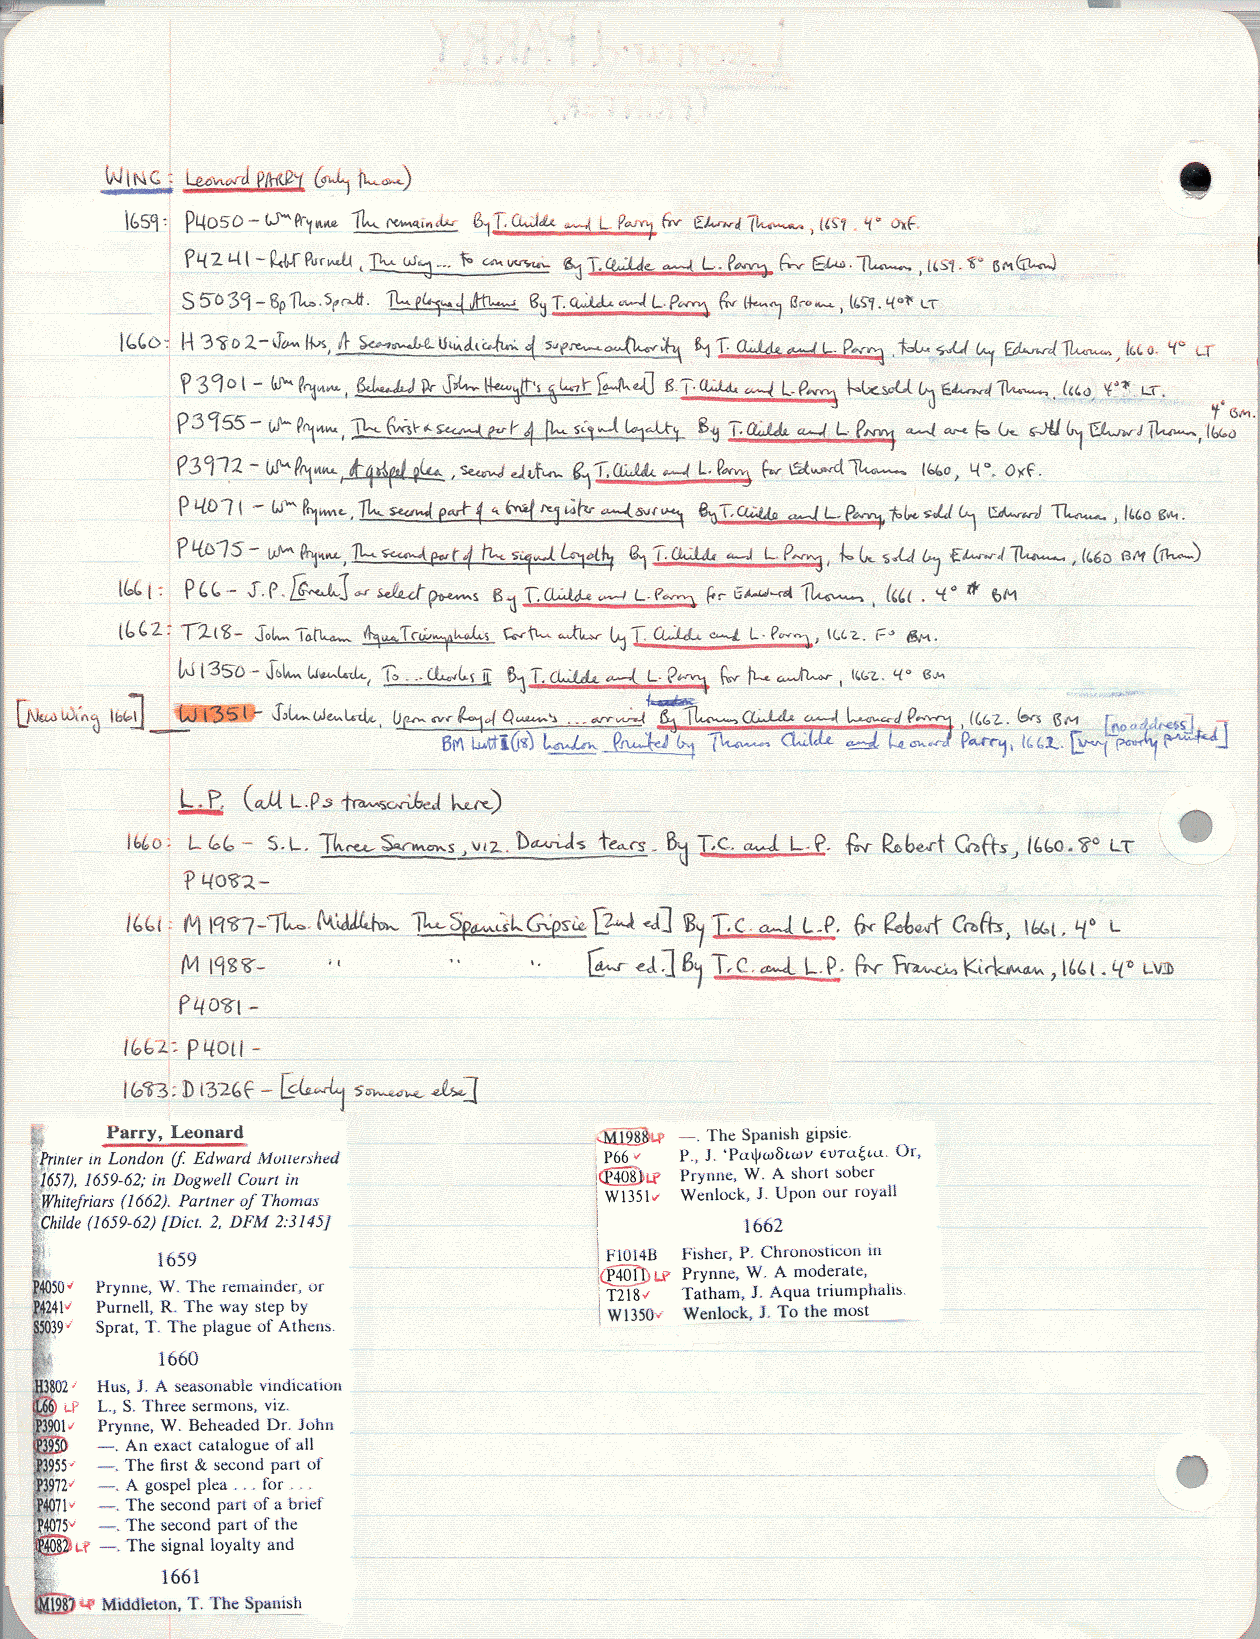 WING: Leonard PARRY (only the one)
1659: P4050 – Wm Prynne The remainder By T. Childe and L. Parry for Edward Thomas, 1659. 4° Oxf.
P4241 – Robt Purnell, The way... to conversion By T. Childe and L. Parry for Edw. Thomas, 1659. 8° BM (Thom)
S5039 – Bp Tho. Spratt. The plague of Athens By T. Childe and L. Parry for Henry Brome, 1659. 4°* LT
1660: H3802 – Jan Hus, A Seasonable Vindication of supreme authority By T. Childe and L. Parry, to be sold by Edward Thomas, 1660. 4° LT
P3901 – Wm Prynne, Beheaded Dr John Hewytt's ghost [anthr ed] B. T. Childe and L. Parry to be sold by Edward Thomas, 1660, 4°* LT.
P3955 – Wm Prynne, The first & second part of the signal loyalty By T. Childe and L. Parry and are to be sold by Edward Thomas, 1660 4° BM.
P3972 – Wm Prynne, A gospel plea, second edition By T. Childe and L. Parry for Edward Thomas 1660, 4°. Oxf.
P4071 – Wm Prynne, The second part of a brief register and survey By T. Childe and L. Parry, to be sold by Edward Thomas, 1660 BM.
P4075 – Wm Prynne, The second part of the signal Loyalty By T. Childe and L. Parry, to be sold by Edward Thomas, 1660 BM (Thom)
1661: P66 – J.P. [Greek] or select poems By T. Childe and L. Parry for Edward Thomas, 1661. 4° * BM
1662: T218 – John Tatham Aqua Triumphalis For the author by T. Childe and L. Parry, 1662. F° BM.
W1350 – John Wenlocke, To... Charles II By T. Childe and L. Parry for the author, 1662. 4° BM
[New Wing 1661] W1351 – John Wenlock, Upon our Royal Queen's ... arrival By Thomas Childe and Leonard Parry, 1662. brs BM [no address]
BM Lutt I (18) London Printed by Thomas Childe and Leonard Parry, 1662. [very poorly printed]
L.P. (all L.P.s transcribed here)
1660: L66 – S.L. Three Sermons, viz. Davids tears. By T.C. and L.P. for Robert Crofts, 1660. 8° LT
P4082 –
1661: M1987 – Tho. Middleton The Spanish Gipsie [2nd ed] By T.C. and L.P. for Robert Crofts, 1661. 4° L
M1988 – " " " [anr ed.] By T.C. and L.P. for Francis Kirkman, 1661. 4° LVD
P4081 –
1662: P4011 –
1683: D1326F – [clearly someone else]
Parry, Leonard
Printer in London (f. Edward Mottershed
1657), 1659-62; in Dogwell Court in
Whitefriars (1662). Partner of Thomas
Childe (1659-62) [Dict. 2, DFM 2:3145]
1659
P4050 ✓ Prynne, W. The remainder, or
P4241 ✓ Purnell, R. The way step by
S5039 ✓ Sprat, T. The plague of Athens.
1660
H3802 ✓ Hus, J. A seasonable vindication
L66 LP L., S. Three sermons, viz.
P3901 ✓ Prynne, W. Beheaded Dr. John
P3950 —. An exact catalogue of all
P3955 ✓ —. The first & second part of
P3972 ✓ —. A gospel plea . . . for . . .
P4071 ✓ —. The second part of a brief
P4075 ✓ —. The second part of the
P4082 LP —. The signal loyalty and
1661
M1987 LP Middleton, T. The Spanish
M1988 LP —. The Spanish gipsie.
P66 ✓ P., J. ‛Ραψωδιων ευταξια. Or,
P4081 LP Prynne, W. A short sober
W1351 ✓ Wenlock, J. Upon our royall
1662
F1014B Fisher, P. Chronosticon in
P4011 LP Prynne, W. A moderate,
T218 ✓ Tatham, J. Aqua triumphalis.
W1350 ✓ Wenlock, J. To the most